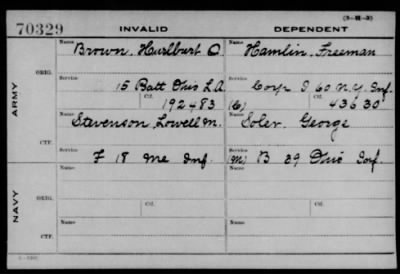 (3-111-3)
70329 INVALID DEPENDENT
Name Name
Brown, Hurlburt C. Hamlin, Freeman
ORIG. Service Service
15 Batt Ohio L.A. Corp I 60 N.Y. Inf.
Ctf. Ctf.
192483 (C) 43630
ARMY
Name Name
Stevenson, Lowell M. Soler, George
CTF. Service Service
F 18 Me Inf. (M) B 29 Ohio Inf.
Name Name
ORIG.
Ctf. Ctf.
NAVY
Name Name
CTF.